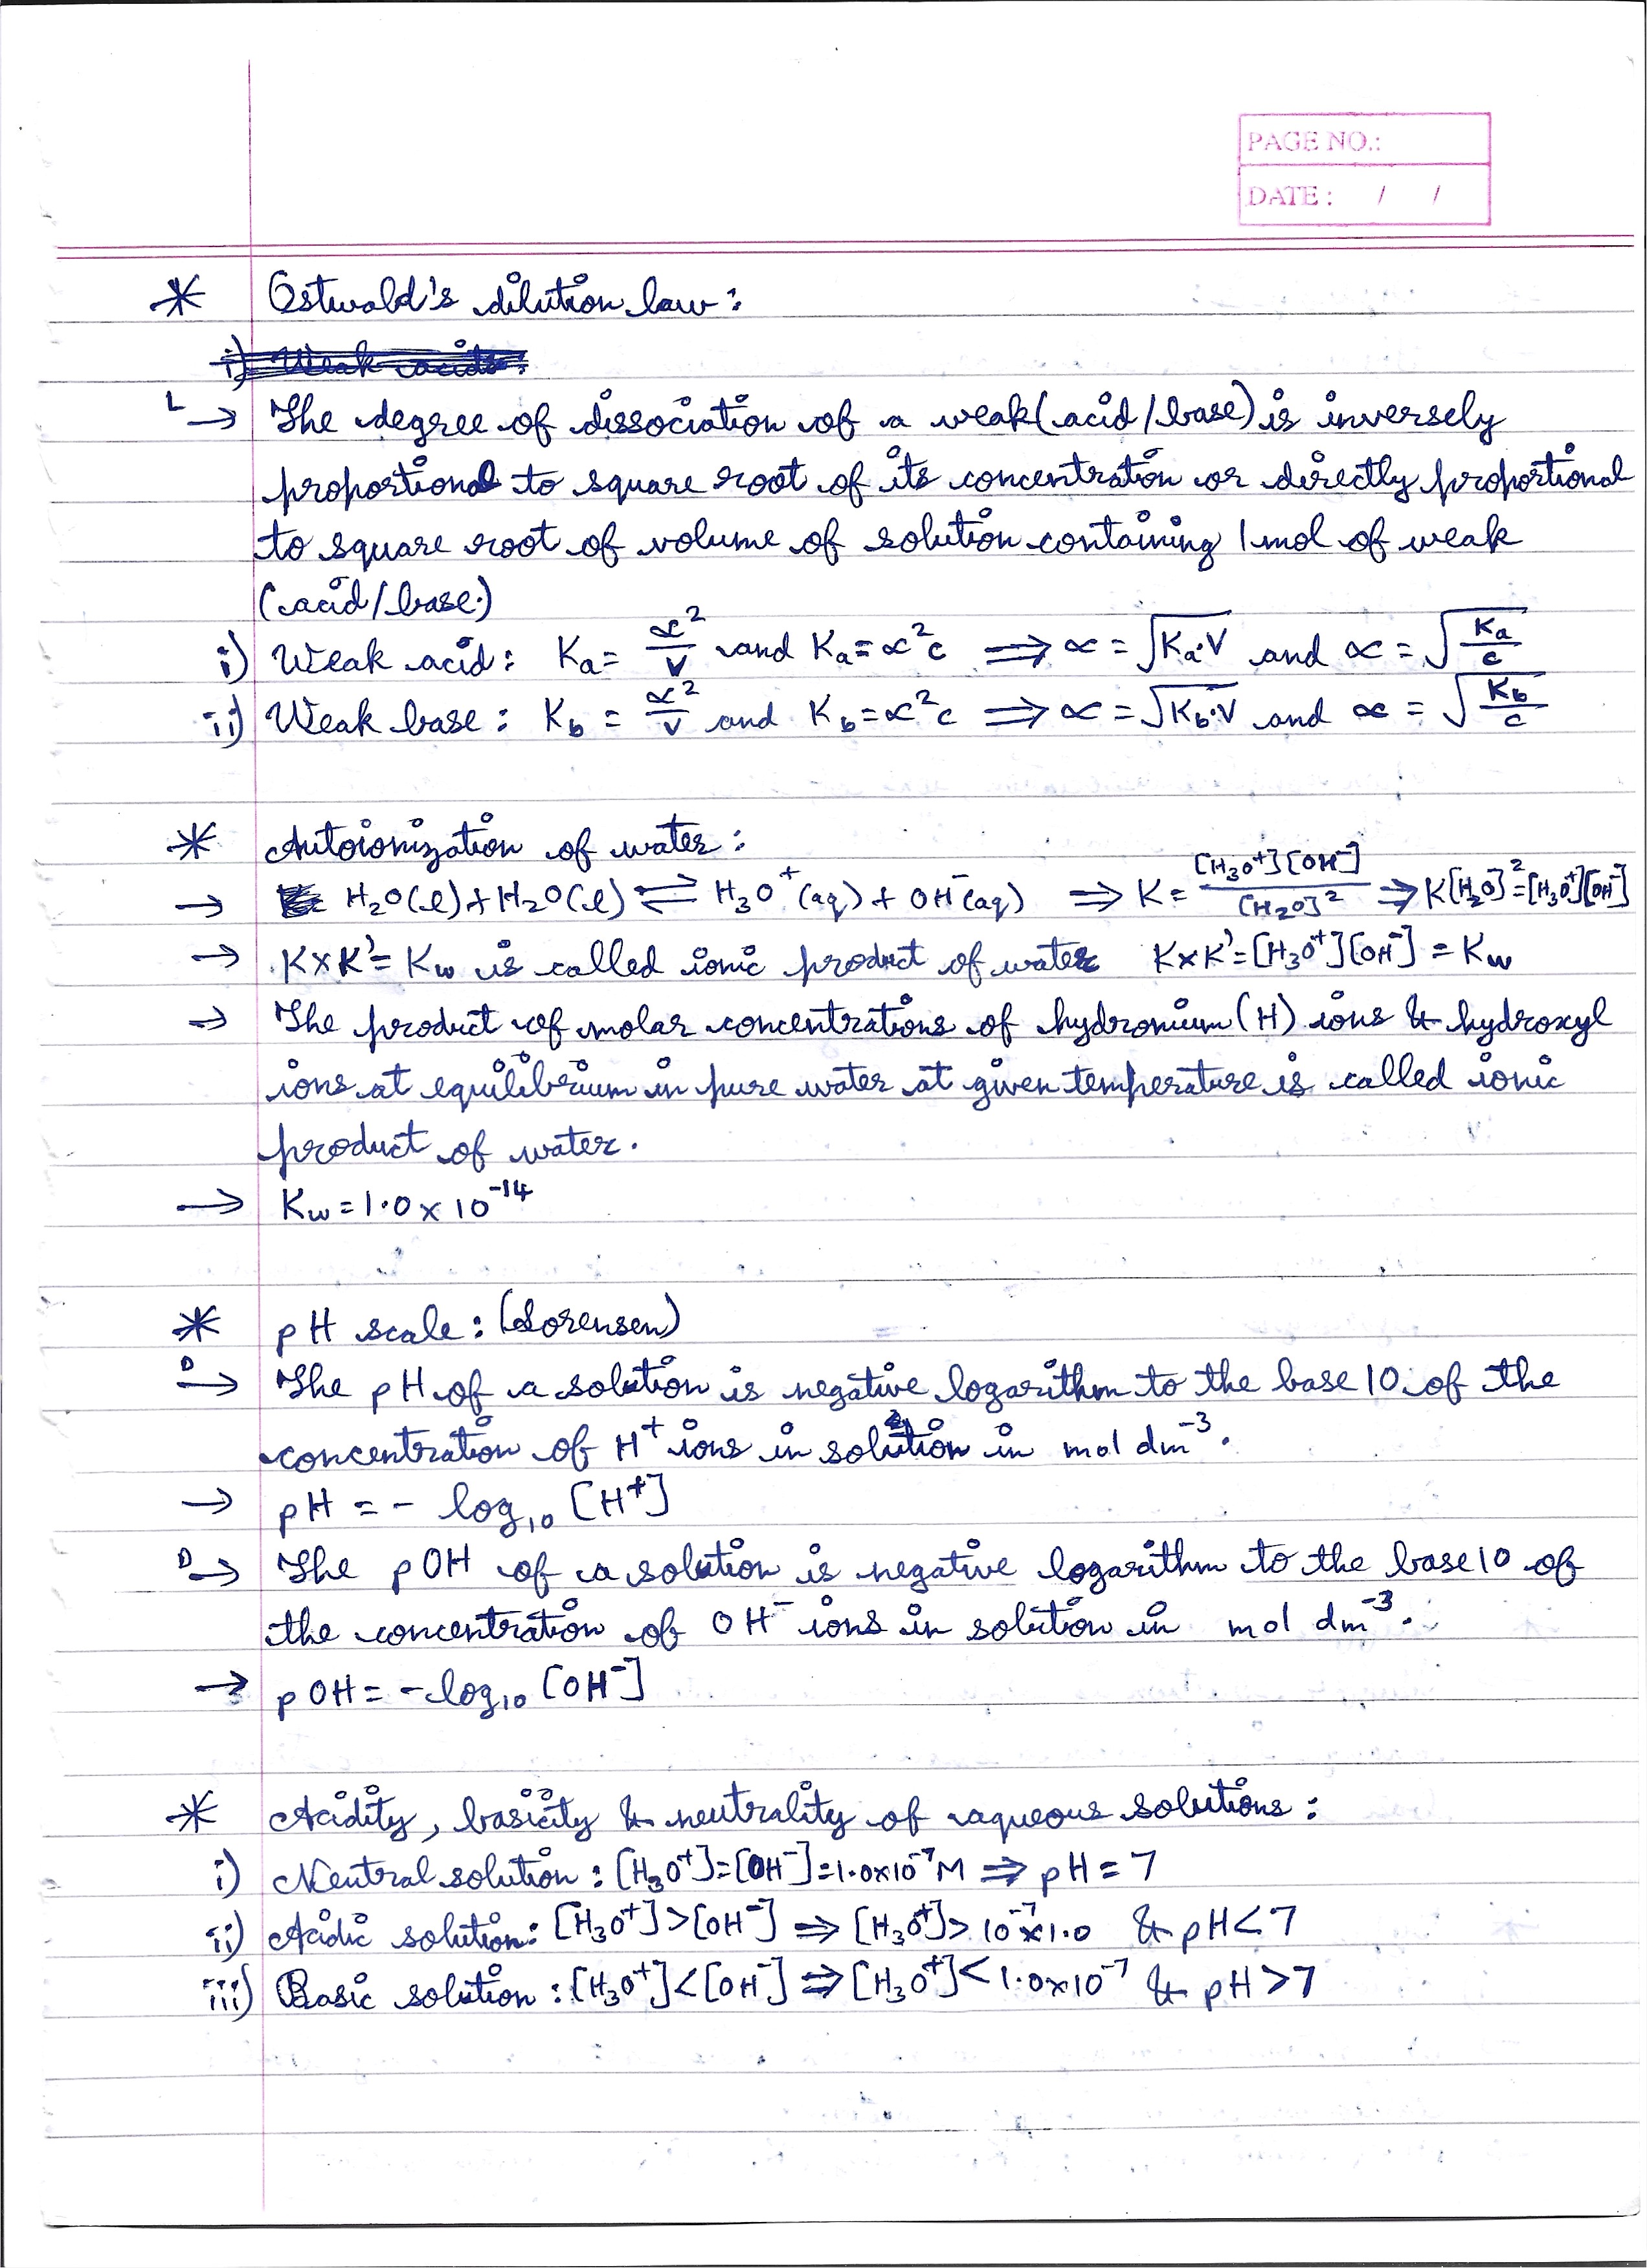 PAGE NO.:
DATE: / /
* Ostwald's dilution law:
i) Weak acids:
L→ The degree of dissociation of a weak (acid/base) is inversely
proportional to square root of its concentration or directly proportional
to square root of volume of solution containing 1 mol of weak
(acid/base.)
i) Weak acid: Ka = ∝²/V and Ka = ∝²c ⇒ ∝ = √Ka·V and ∝ = √Ka/c
ii) Weak base: Kb = ∝²/V and Kb = ∝²c ⇒ ∝ = √Kb·V and ∝ = √Kb/c
* Autoionization of water:
→ H₂O(l) + H₂O(l) ⇌ H₃O⁺(aq) + OH⁻(aq) ⇒ K = [H₃O⁺][OH⁻]/[H₂O]² ⇒ K[H₂O]² = [H₃O⁺][OH⁻]
→ K×K' = Kw is called ionic product of water K×K' = [H₃O⁺][OH⁻] = Kw
→ The product of molar concentrations of hydronium (H) ions & hydroxyl
ions at equilibrium in pure water at given temperature is called ionic
product of water.
→ Kw = 1.0 × 10⁻¹⁴
* pH scale: (Sorensen)
D→ The pH of a solution is negative logarithm to the base 10 of the
concentration of H⁺ ions in solution in mol dm⁻³.
→ pH = - log₁₀ [H⁺]
D→ The pOH of a solution is negative logarithm to the base 10 of
the concentration of OH⁻ ions in solution in mol dm⁻³.
→ pOH = -log₁₀ [OH⁻]
* Acidity, basicity & neutrality of aqueous solutions:
i) Neutral solution: [H₃O⁺] = [OH⁻] = 1.0×10⁻⁷ M ⇒ pH = 7
ii) Acidic solution: [H₃O⁺] > [OH⁻] ⇒ [H₃O⁺] > 10⁻⁷×1.0 & pH < 7
iii) Basic solution: [H₃O⁺] < [OH⁻] ⇒ [H₃O⁺] < 1.0×10⁻⁷ & pH > 7